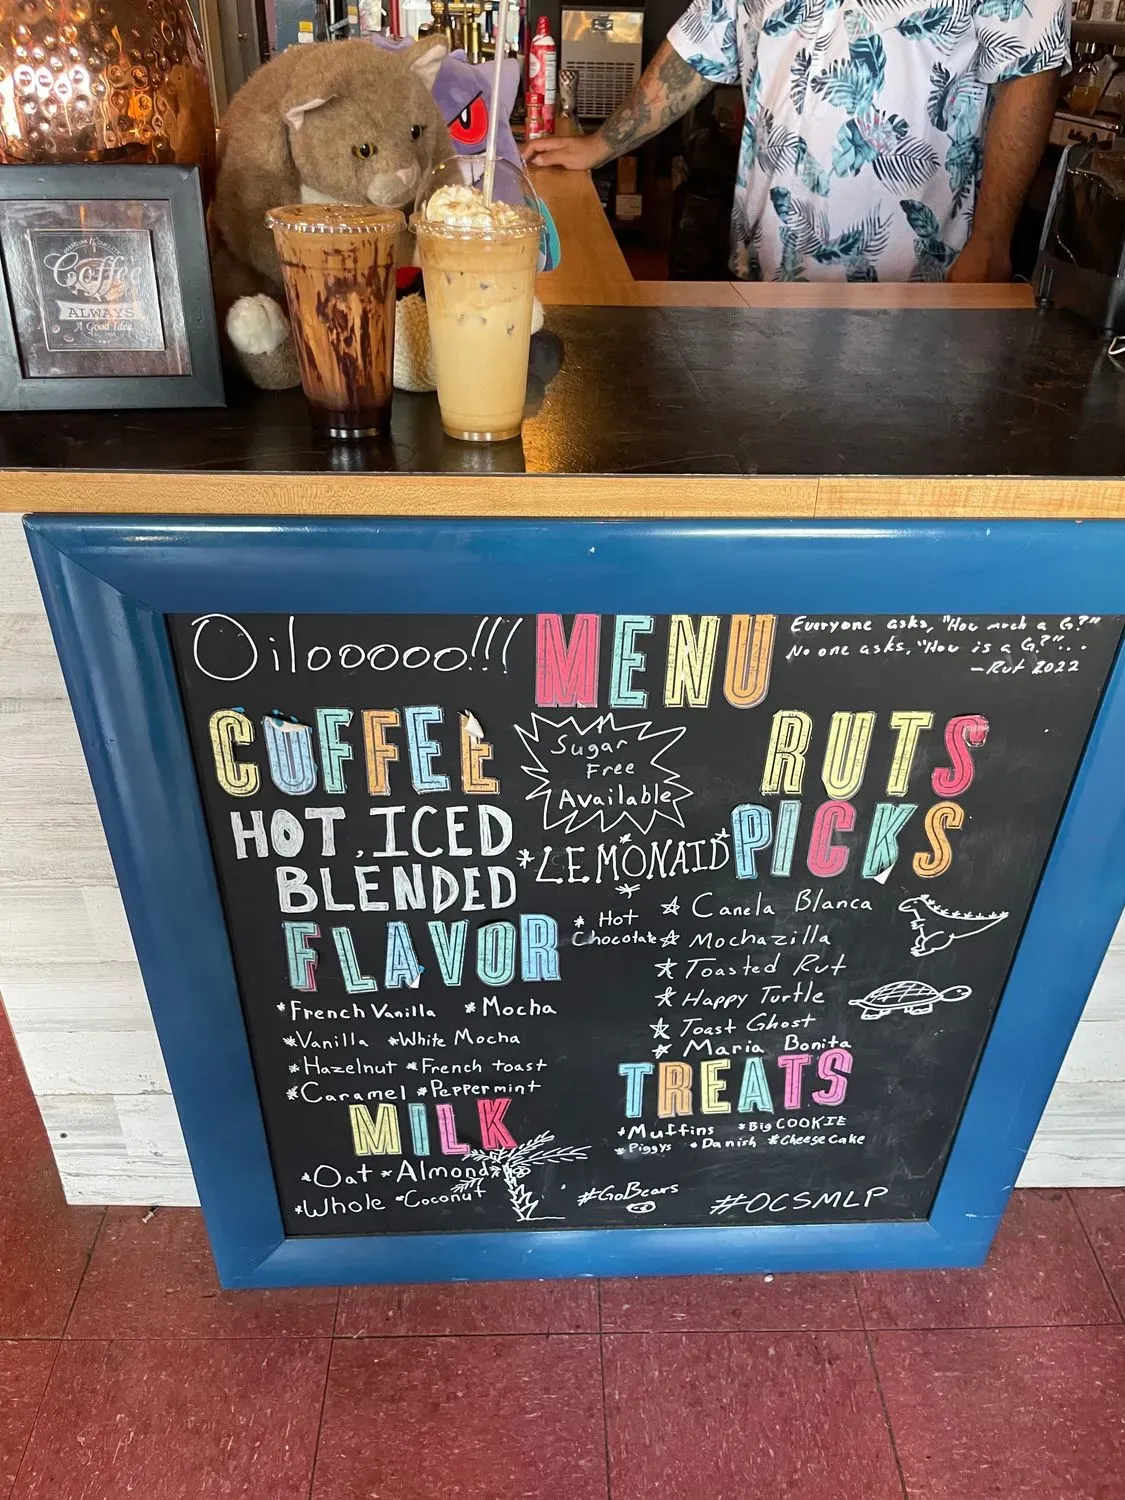 Coffee
ALWAYS
A Good Idea
Oilooooo!!!
MENU
Everyone asks, "How much a G?"
No one asks, "How is a G?"...
-Rut 2022
COFFEE
HOT, ICED
BLENDED
Sugar
Free
Available
*LEMONAID*
* Hot
Chocolate
FLAVOR
*French Vanilla *Mocha
*Vanilla *White Mocha
*Hazelnut *French toast
*Caramel *Peppermint
MILK
*Oat *Almond
*Whole *Coconut
RUTS
PICKS
☆ Canela Blanca
☆ Mochazilla
☆ Toasted Rut
☆ Happy Turtle
☆ Toast Ghost
☆ Maria Bonita
TREATS
*Muffins *Big COOKIE
*Piggys *Danish *Cheese Cake
#GoBears
#OCSMLP